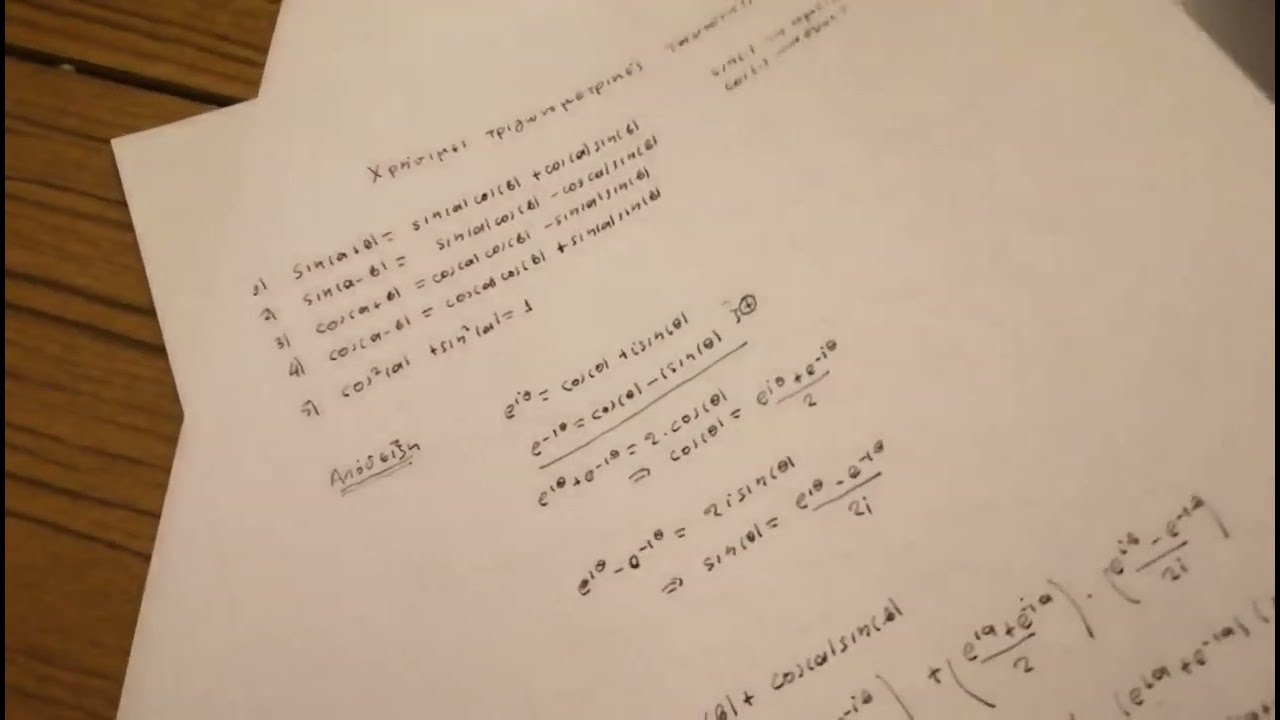 Χρήσιμες τριγωνομετρικές
1) sin(a+β) = sin(a)cos(β) + cos(a)sin(β)
2) sin(a-β) = sin(a)cos(β) - cos(a)sin(β)
3) cos(a+β) = cos(a)cos(β) - sin(a)sin(β)
4) cos(a-β) = cos(a)cos(β) + sin(a)sin(β)
5) cos²(a) + sin²(a) = 1
Απόδειξη
e^{iθ} = cos(θ) + isin(θ)
e^{-iθ} = cos(θ) - isin(θ) } ⊕
e^{iθ} + e^{-iθ} = 2·cos(θ)
⇒ cos(θ) = (e^{iθ} + e^{-iθ})/2
e^{iθ} - e^{-iθ} = 2isin(θ)
⇒ sin(θ) = (e^{iθ} - e^{-iθ})/2i
(β) + cos(a)sin(β)
e^{-iθ}) + ((e^{ia} + e^{-ia})/2) · ((e^{iβ} - e^{-iβ})/2i)
(e^{ia} + e^{-ia}) (